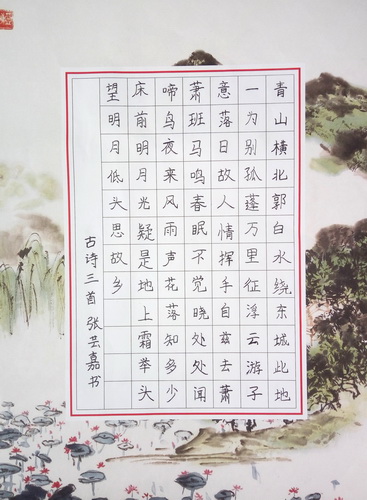 青山横北郭白水绕东城此地
一为别孤蓬万里征浮云游子
意落日故人情挥手自兹去萧
萧班马鸣春眠不觉晓处处闻
啼鸟夜来风雨声花落知多少
床前明月光疑是地上霜举头
望明月低头思故乡
古诗三首 张芸嘉书